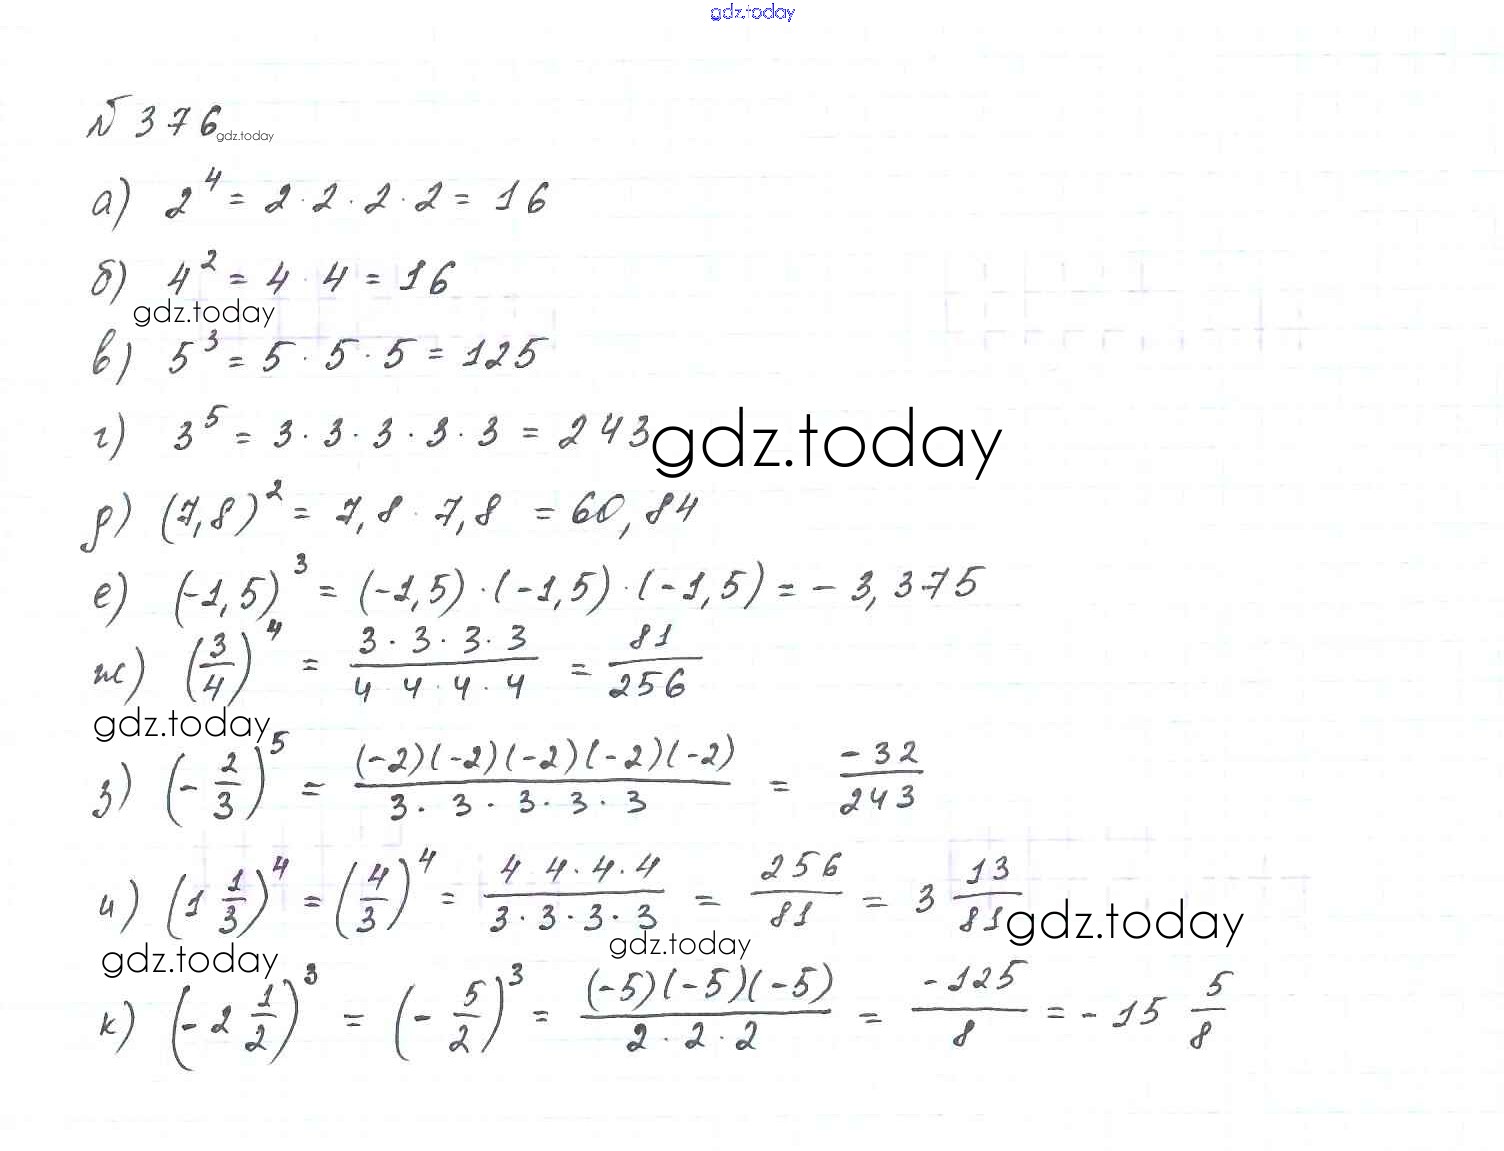 gdz.today
№ 376 gdz.today
а) 2⁴ = 2 · 2 · 2 · 2 = 16
б) 4² = 4 · 4 = 16
gdz.today
в) 5³ = 5 · 5 · 5 = 125
г) 3⁵ = 3 · 3 · 3 · 3 · 3 = 243 gdz.today
д) (7,8)² = 7,8 · 7,8 = 60,84
е) (-1,5)³ = (-1,5) · (-1,5) · (-1,5) = - 3,375
ж) (3/4)⁴ = (3 · 3 · 3 · 3)/(4 · 4 · 4 · 4) = 81/256
gdz.today
з) (- 2/3)⁵ = ((-2)(-2)(-2)(-2)(-2))/(3 · 3 · 3 · 3 · 3) = -32/243
и) (1 1/3)⁴ = (4/3)⁴ = (4 · 4 · 4 · 4)/(3 · 3 · 3 · 3) = 256/81 = 3 13/81 gdz.today
gdz.today gdz.today
к) (- 2 1/2)³ = (- 5/2)³ = ((-5)(-5)(-5))/(2 · 2 · 2) = -125/8 = - 15 5/8